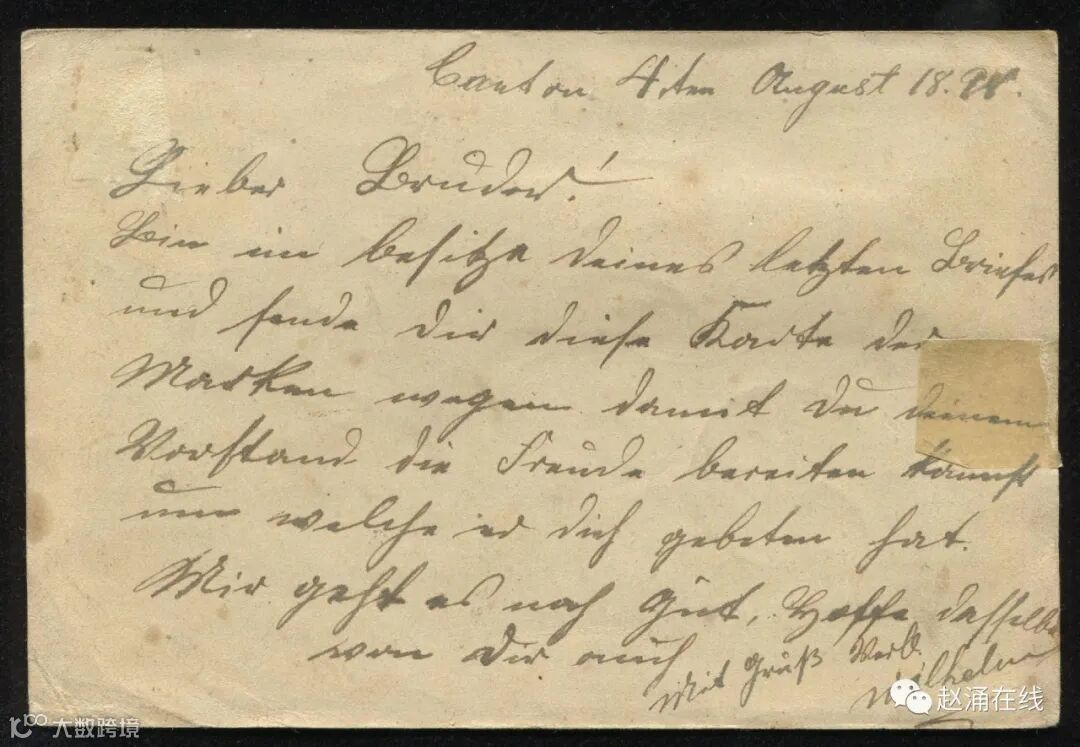 Canton 4ten August 18.
Lieber Bruder!
Bin im besitze deines letzten Briefes
und sende dir diese Karte der
Marken wegen damit du deinem
Vorstand die Freude bereiten kannst
um welche er dich gebeten hat.
Mir geht es noch Gut, Hoffe dasselbe
von dir auch
Mit Gruß Verbl.
Wilhelm
赵涌在线
大数跨境